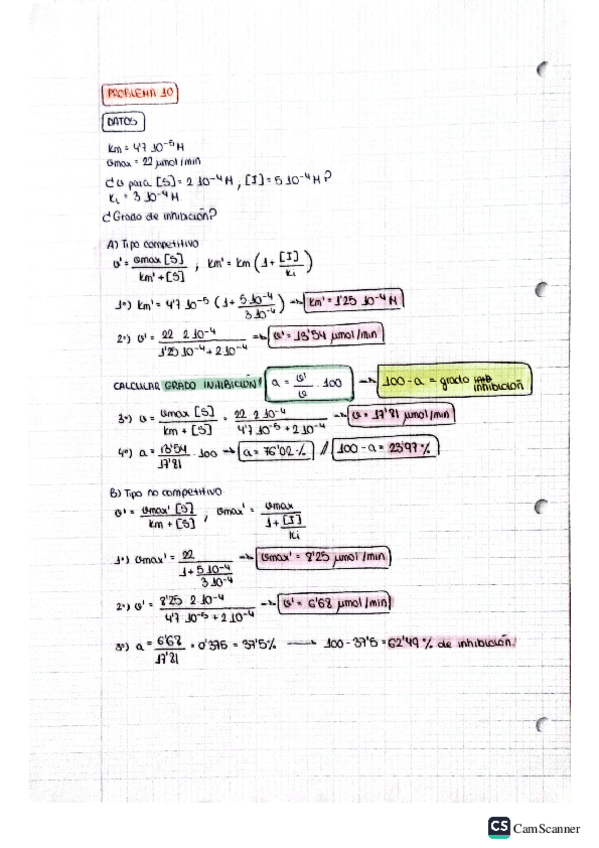 PROBLEMA 10
DATOS
Km = 4'7 10⁻⁵ M
vmax = 22 µmol/min
¿v para [S] = 2 10⁻⁴ M, [I] = 5 10⁻⁴ M?
Ki = 3 10⁻⁴ M
¿Grado de inhibición?
A) Tipo competitivo
v' = vmax [S] / km' + [S] ; km' = km (1 + [I] / Ki)
1º) km' = 4'7 10⁻⁵ (1 + 5 10⁻⁴ / 3 10⁻⁴) → km' = 1'25 10⁻⁴ M
2º) v' = 22 2 10⁻⁴ / 1'25 10⁻⁴ + 2 10⁻⁴ → v' = 13'54 µmol/min
CALCULAR GRADO INHIBICIÓN! a = v' / v . 100 → 100 - a = grado inhibición
3º) v = vmax [S] / km + [S] = 22 2 10⁻⁴ / 4'7 10⁻⁵ + 2 10⁻⁴ → v = 17'81 µmol/min
4º) a = 13'54 / 17'81 . 100 → a = 76'02 % // 100 - a = 23'97 %
B) Tipo no competitivo
v' = vmax' [S] / km + [S] ; vmax' = vmax / 1 + [I] / Ki
1º) vmax' = 22 / 1 + 5 10⁻⁴ / 3 10⁻⁴ → vmax' = 8'25 µmol/min
2º) v' = 8'25 2 10⁻⁴ / 4'7 10⁻⁵ + 2 10⁻⁴ → v' = 6'68 µmol/min
3º) a = 6'68 / 17'81 = 0'375 = 37'5% → 100 - 37'5 = 62'49 % de inhibición
CS CamScanner